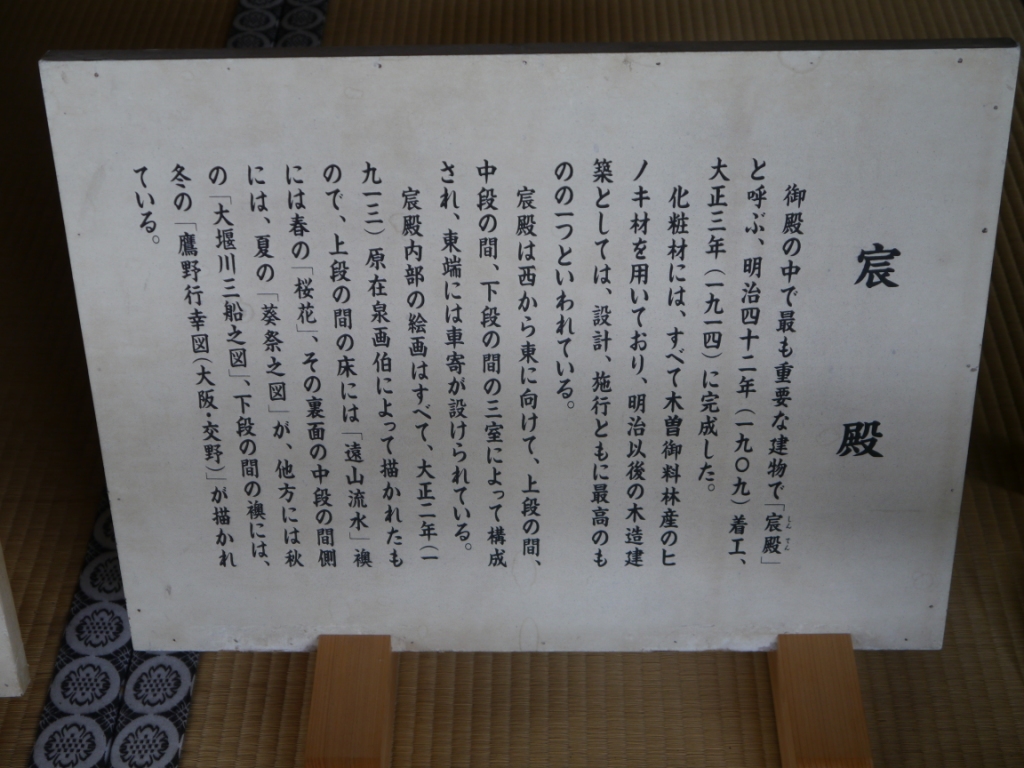 宸殿
御殿の中で最も重要な建物で「宸殿」
しんでん
と呼ぶ、明治四十二年（一九〇九）着工、
大正三年（一九一四）に完成した。
化粧材には、すべて木曽御料林産のヒ
ノキ材を用いており、明治以後の木造建
築としては、設計、施行ともに最高のも
のの一つといわれている。
宸殿は西から東に向けて、上段の間、
中段の間、下段の間の三室によって構成
され、東端には車寄が設けられている。
宸殿内部の絵画はすべて、大正二年（一
九一三）原在泉画伯によって描かれたも
ので、上段の間の床には「遠山流水」襖
には春の「桜花」、その裏面の中段の間側
には、夏の「葵祭之図」が、他方には秋
の「大堰川三船之図」、下段の間の襖には、
冬の「鷹野行幸図（大阪・交野）」が描かれ
ている。